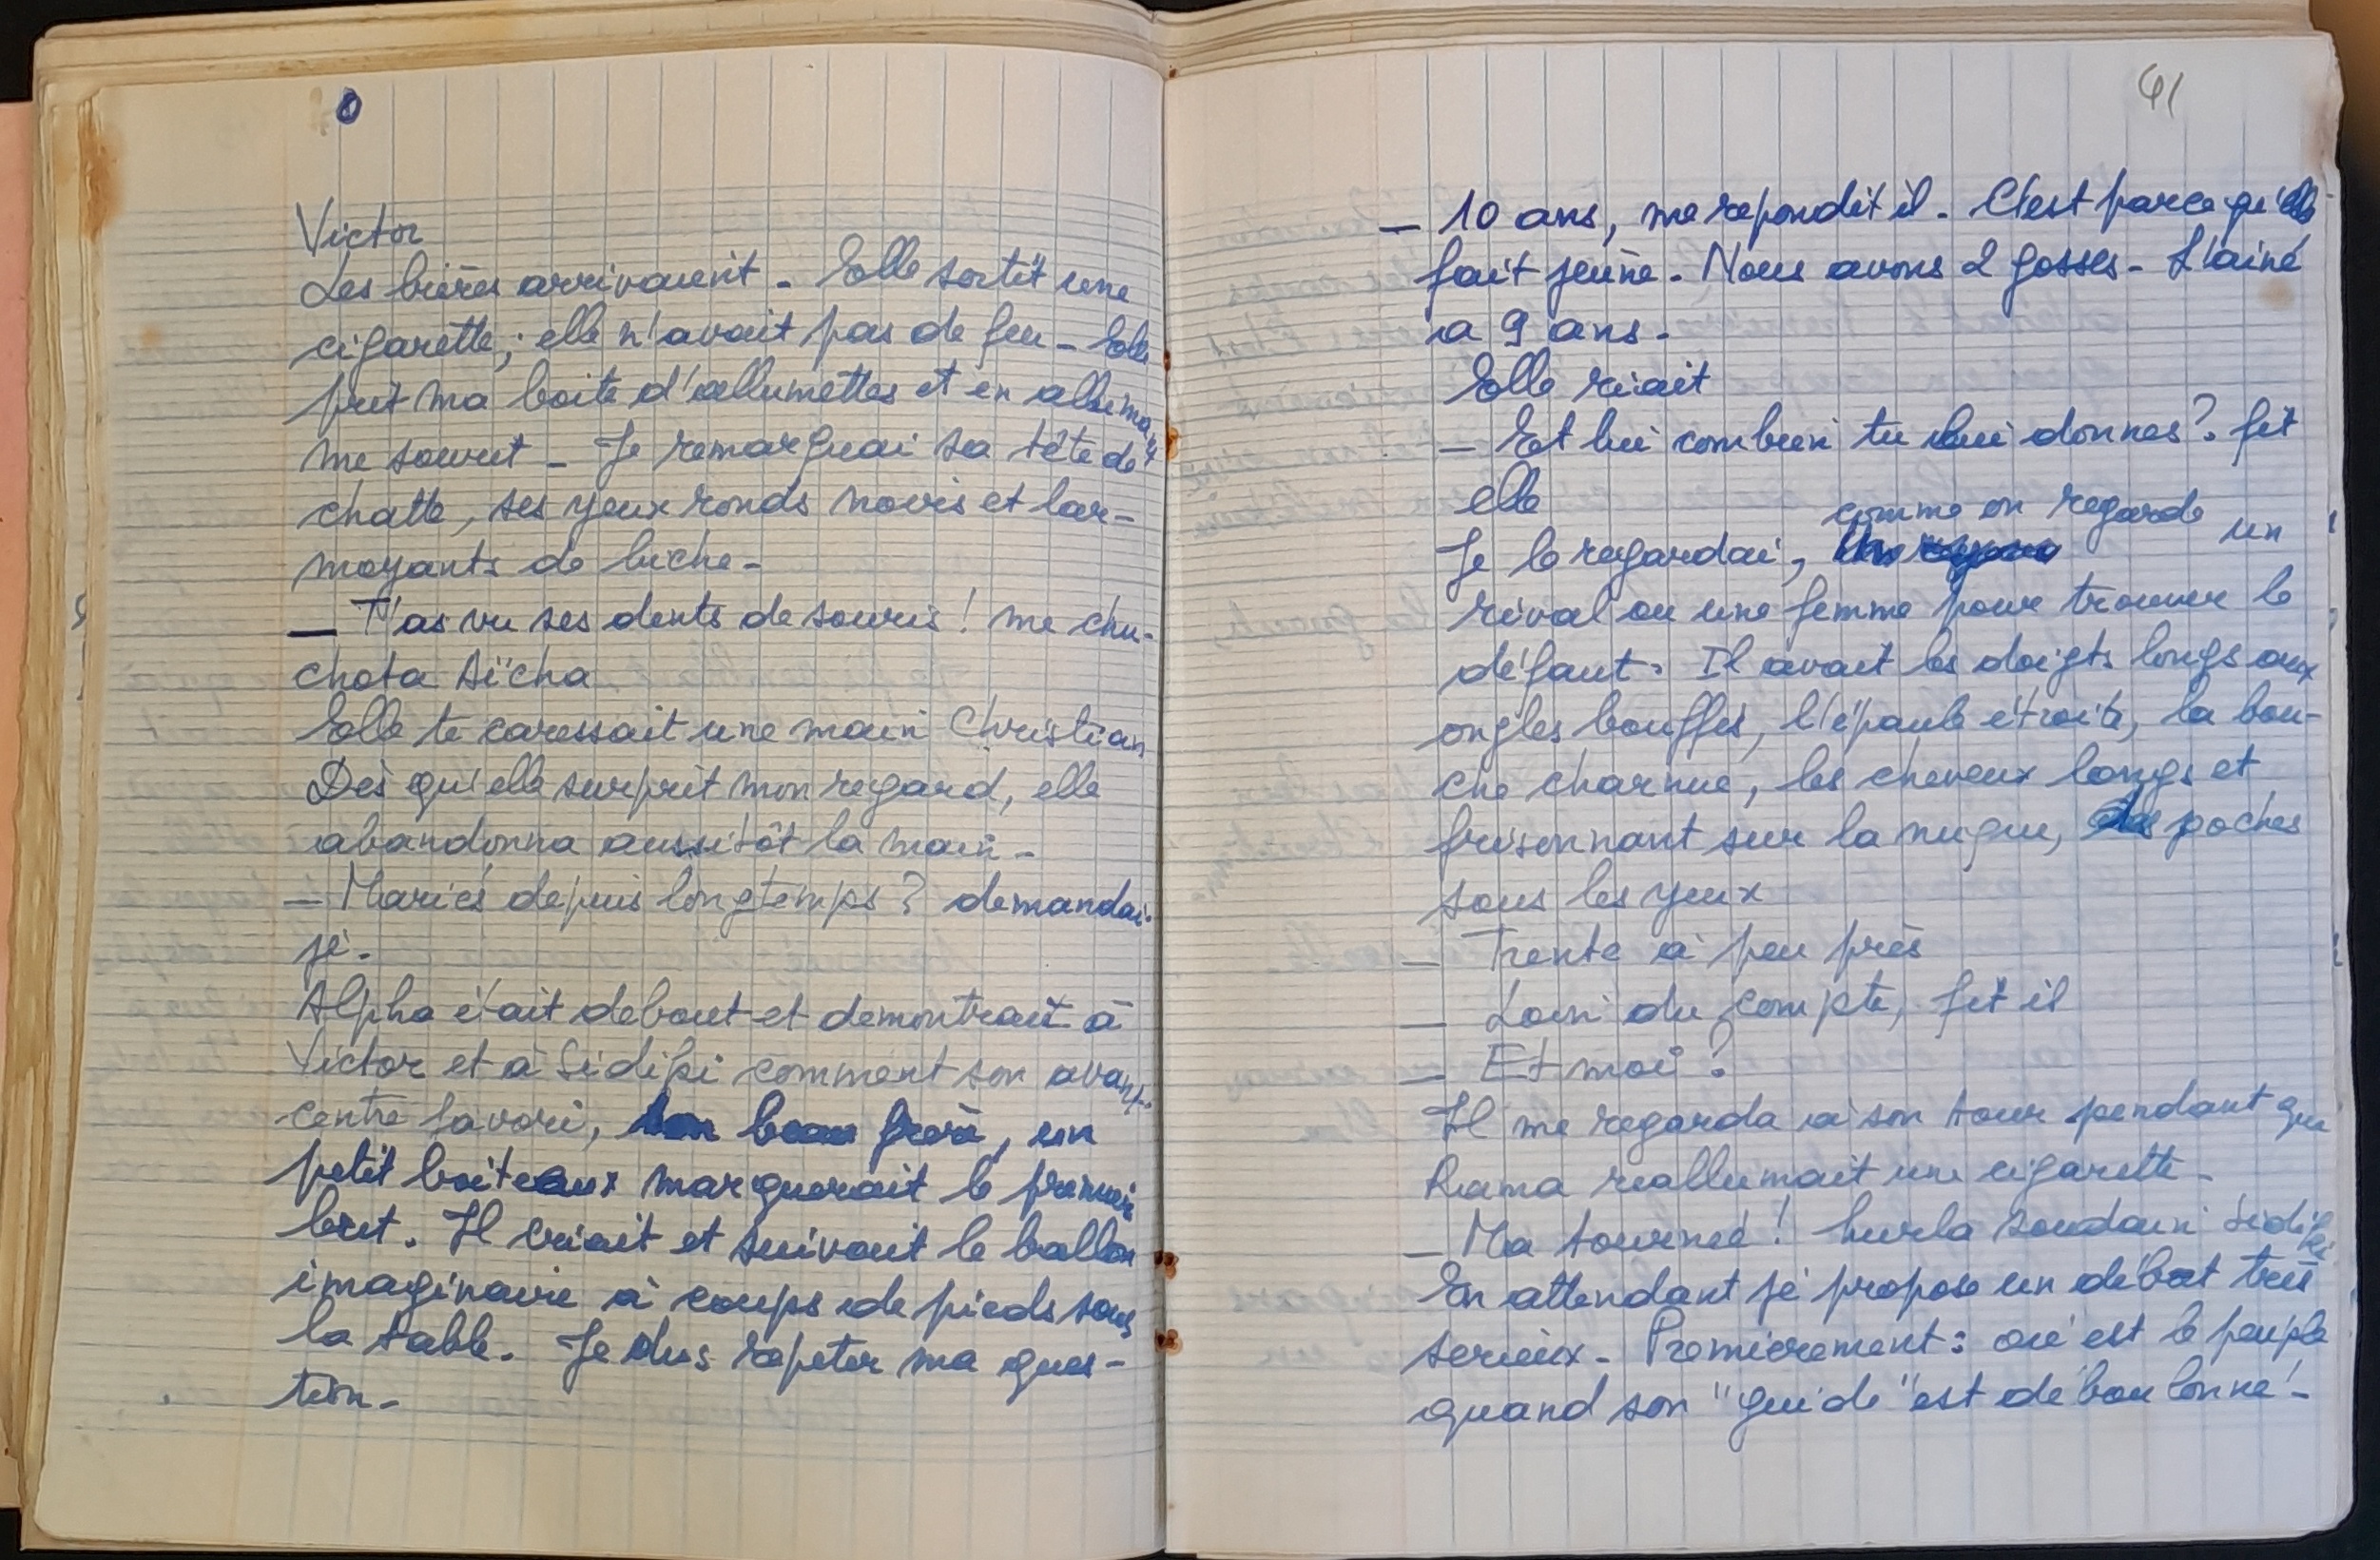 Victor
Les bières arrivaient - Elle sortit une
cigarette; elle n'avait pas de feu - Elle
prit ma boite d'allumettes et en alluma,
me sourit - Je remarquai sa tête de
chatte, ses yeux ronds noirs et lar-
moyants de biche -
— T'as vu ses dents de souris ! me chu-
chota Aïcha
Elle te caressait une main Christian
Dès qu'elle surprit mon regard, elle
abandonna aussitôt la main -
— Mariés depuis longtemps ? demandai-
je -
Alpha était debout et demontrait à
Victor et à Sidiki comment son avant-
centre favori, son beau frère, un
petit boiteux marquerait le premier
but. Il criait et suivait le ballon
imaginaire à coups de pieds sous
la table. Je dus repeter ma ques-
tion -
41
— 10 ans, me repondit il - C'est parce qu'elle
fait jeune - Nous avons 2 gosses - L'ainé
a 9 ans -
Elle riait
— Et lui combien tu lui donnes ? fit
elle
comme on regarde un
Je le regardai,
rival ou une femme pour trouver le
défaut. Il avait les doigts longs aux
ongles bouffés, l'épaule étroite, la bou-
che charnue, les cheveux longs et
frisonnant sur la nuque, des poches
sous les yeux
— Trente à peu près
— Loin du compte, fit il
— Et moi ?
Il me regarda à son tour pendant que
Rama reallumait une cigarette -
— Ma tournée ! hurla soudain Sidiki
En attendant je propose un débat très
serieux - Premierement : où est le peuple
quand son "guide" est déboulonné -